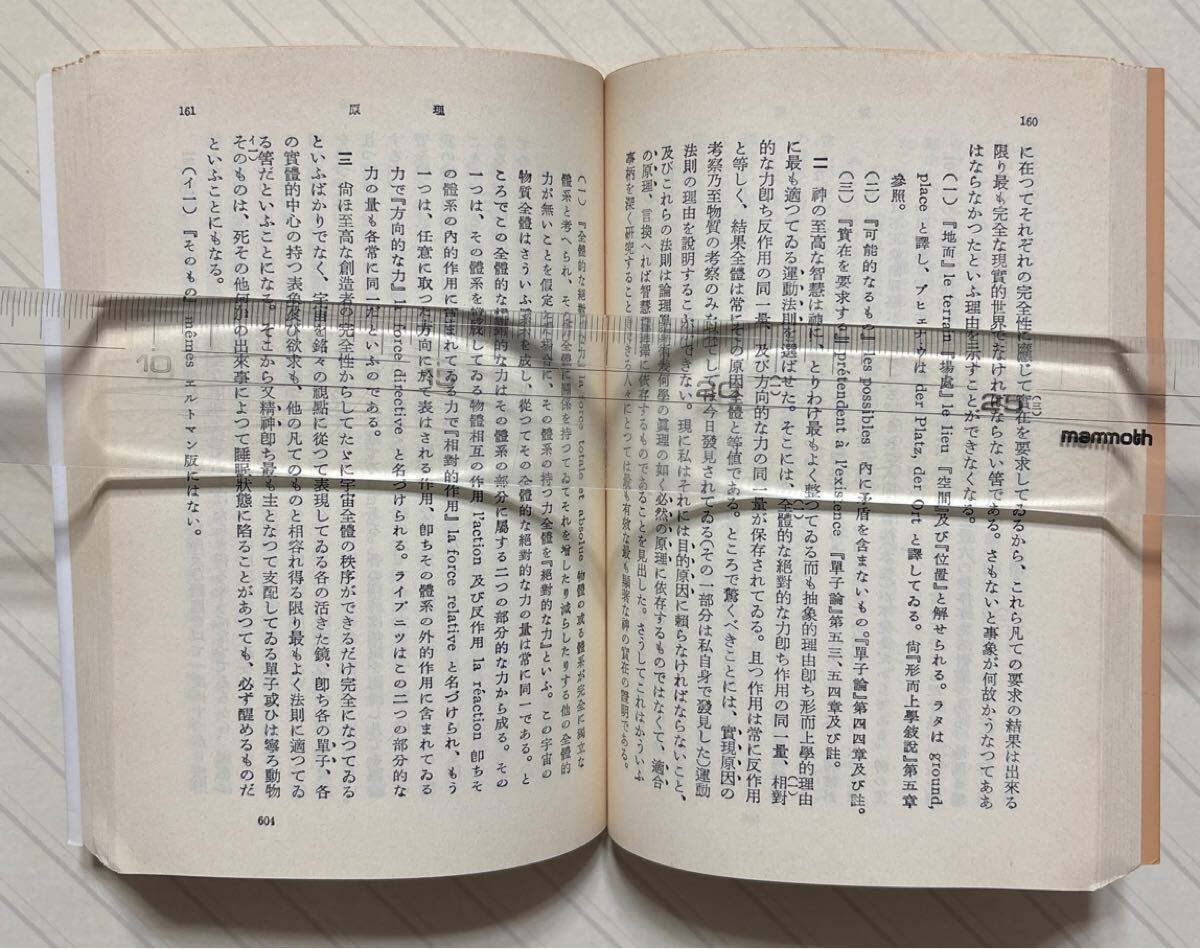 160
に在つてそれぞれの完全性に應じて實在を要求してゐるから、これら凡ての要求の結果は出來る
限り最も完全な現實的世界でなければならない筈である。さもないと事象が何故かうなつてああ
はならなかつたといふ理由を示すことができなくなる。
(一) 『地面』le terrain 『場處』le lieu 『空間』及び『位置』と解せられる。ラタは ground,
place と譯し、は der Platz, der Ort と譯してゐる。尙『形而上學敍說』第五章
參照。
(二) 『可能的なるもの』les possibles 內に矛盾を含まないもの。『單子論』第四四章及び註。
(三) 『實在を要求する』prétendent à l'existence 『單子論』第五三、五四章及び註。
一一 神の至高な智慧は神に、とりわけ最もよく整つてゐる而も抽象的理由卽ち形而上學的理由
に最も適つてゐる運動法則を選ばせた。そこには、全體的な絕對的な力卽ち作用の同一量、相對
的な力卽ち反作用の同一量、及び方向的な力の同一量が保存されてゐる。且つ作用は常に反作用
と等しく、結果全體は常にその原因全體と等値である。ところで驚くべきことには、實現原因の
考察乃至物質の考察のみを以てしては今日發見されてゐる(その一部分は私自身で發見した)運動
法則の理由を說明することができない。現に私はそれには目的原因に賴らなければならないこと、
及びこれらの法則は論理學術幾何學の眞理の如く必然の原理に依存するものではなくて、適合
の原理、言換へれば智慧の選擇に依存するものであることを見出した。さうしてこれはかういふ
事柄を深く硏究することのできる人々にとつては最も有效な最も顯著な神の實在の證明である。
161
原理
(一) 『全體的な絕對的な力』la force totale et absolue 物體の或る體系が完全に獨立な
體系と考へられ、その全體に關係を持つてゐてそれを增したり減らしたりする他の全體的
力が無いことを假定した場合に、その體系の持つ力全體を『絕對的な力』といふ。この宇宙の
物質全體はさういふ體系を成し、從つてその全體的な絕對的な力の量は常に同一である。と
ころでこの全體的な絕對的な力はその體系の部分に屬する二つの部分的な力から成る。その
一つは、その體系を構成してゐる物體相互の作用 l'action 及び反作用 la réaction 卽ちそ
の體系の內的作用に含まれてゐる力で『相對的作用』la force relative と名づけられ、もう
一つは、任意に取つた方向に於て表はされる作用、卽ちその體系の外的作用に含まれてゐる
力で『方向的な力』la force directive と名づけられる。ライプニツはこの二つの部分的な
力の量も各常に同一だといふのである。
一三 尙ほ至高な創造者の完全性からしてたゞに宇宙全體の秩序ができるだけ完全になつてゐる
といふばかりでなく、宇宙を銘々の視點に從つて表現してゐる各の活きた鏡、卽ち各の單子、各
の實體的中心の持つ表象及び欲求も、他の凡てのものと相容れ得る限り最もよく法則に適つてゐ
る筈だといふことになる。そこから又精神卽ち最も主となつて支配してゐる單子或ひは寧ろ動物
そのものは、死その他何かの出來事によつて睡眠狀態に陷ることがあつても、必ず醒めるものだ
といふことにもなる。
(イ一) 『そのもの』mêmes エルトマン版にはない。
604
10
15
20
25
mammoth